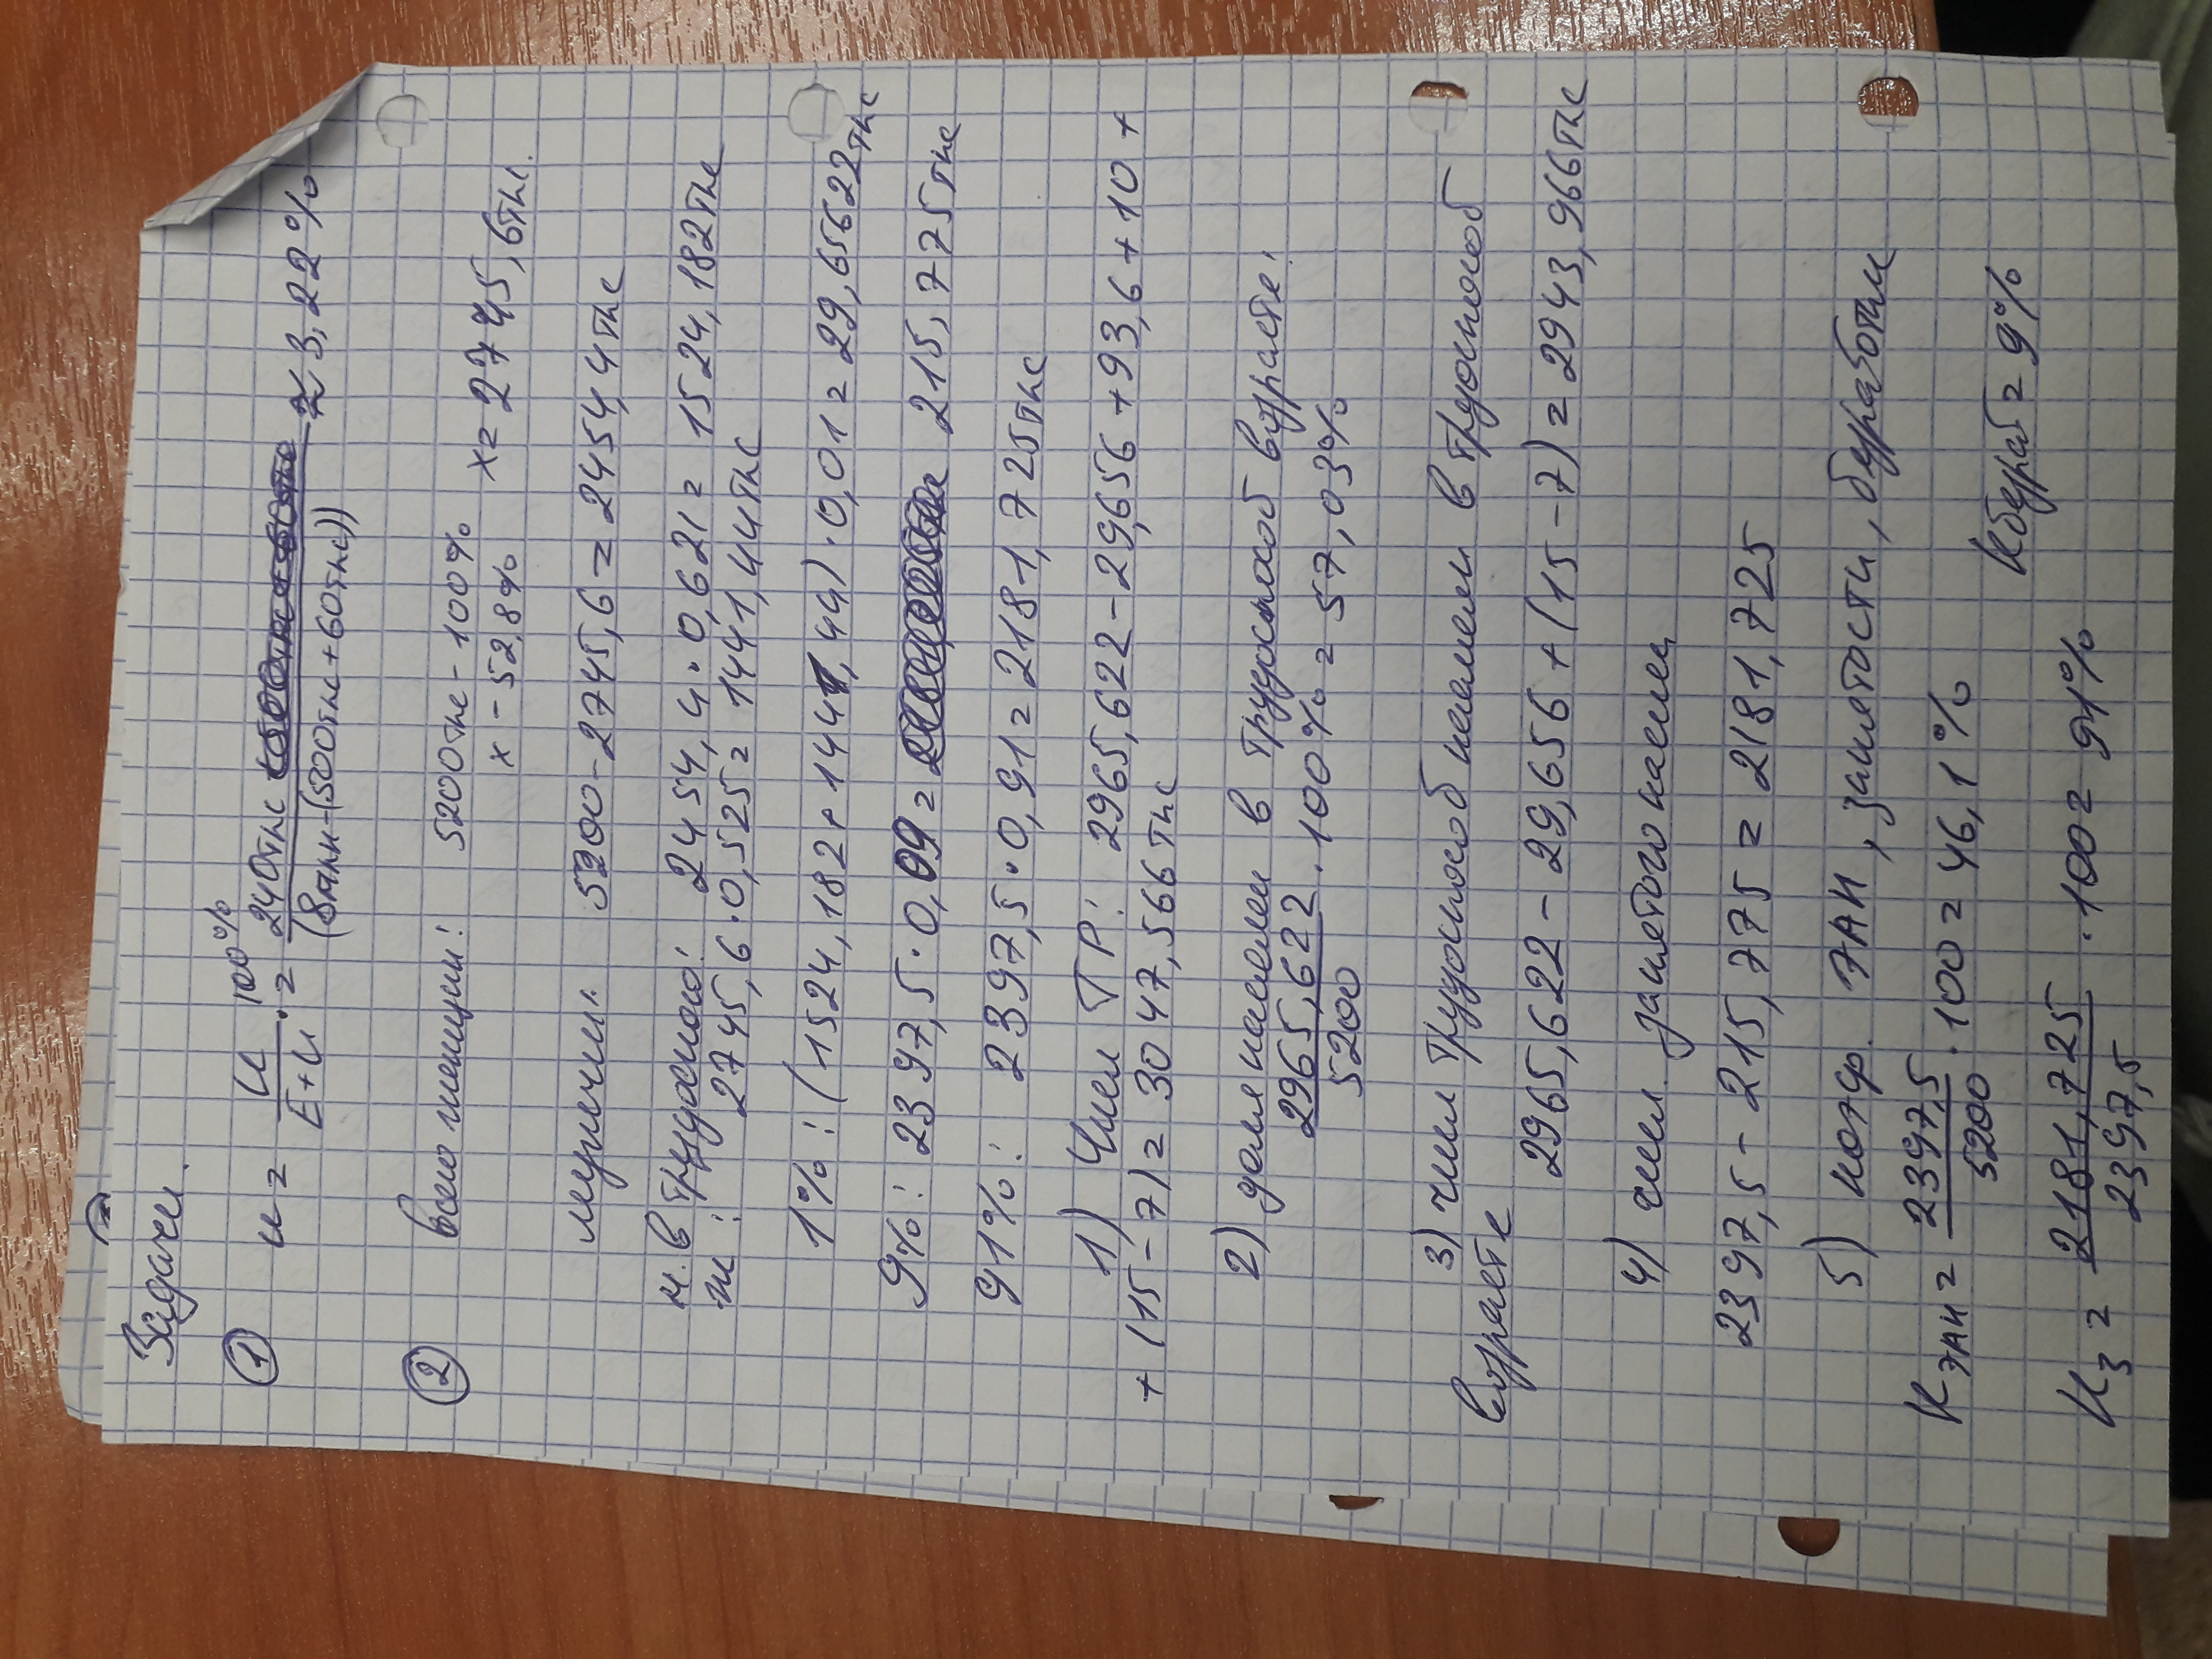 Задачи.
① u = U / (E+U) · 100% = 240тыс / (8млн-(500тыс+60тыс)) ≈ 3,22%
② всего женщин: 5200тыс - 100% x = 2745,6тыс.
x - 52,8%
мужчин: 5200-2745,6 = 2454,4тыс
м. в трудоспос: 2454,4·0,621 = 1524,182тыс
ж: 2745,6·0,525 = 1441,44тыс
1%: (1524,182+1441,44)·0,01 = 29,65622тыс
9%: 2397,5·0,09 = 215,775тыс
91%: 2397,5·0,91 = 2181,725тыс
1) Числ ТР: 2965,622-29,656+93,6+10+
+(15-7) = 3047,566тыс
2) доля населен в трудоспособ возрасте:
2965,622 / 5200 · 100% = 57,03%
3) числ трудоспособ населен в трудоспособ
возрасте 2965,622-29,656+(15-7) = 2943,966тыс
4) числ. занятого насел
2397,5-215,775 = 2181,725
5) коэф. ЭАН, занятости, безработи
Кэан = 2397,5 / 5200 · 100 = 46,1% Кбезраб = 9%
Кз = 2181,725 / 2397,5 · 100 = 91%